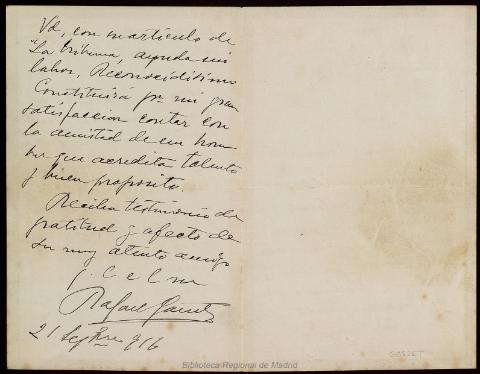 Vd, con su artículo de
"La tribuna, ayuda mi
labor. Reconocidísimo
Constituirá pa mi gran
satisfaccion contar con
la amistad de un hom-
bre que acredita talento
y buen proposito.
Reciba testimonio de
gratitud y afecto de
su muy atento amigo
q. l. e l m
Rafael
21 Sepbre 916
Biblioteca Regional de Madrid